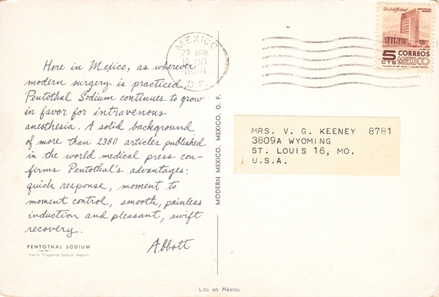 Here in Mexico, as wherever
modern surgery is practiced
Pentothal Sodium continues to grow
in favor for intravenous
anesthesia. A solid background
of more than 2380 articles published
in the world medical press con-
firms Pentothal's advantages:
quick response, moment to
moment control, smooth, painless
induction and pleasant, swift
recovery.
Abbott
PENTOTHAL SODIUM
MODERN MEXICO. MEXICO, D. F.
MEXICO
D. F.
5
CTS
CORREOS
MEXICO
MRS. V. G. KEENEY 8781
3809A WYOMING
ST. LOUIS 16, MO.
U.S.A.
Lito en México.